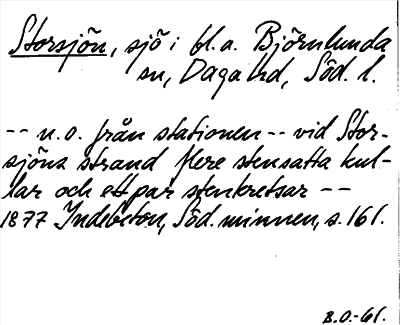 Storsjön, sjö i bl.a. Björnlunda
sn, Daga hd, Söd. l.
-- n.o. från stationen -- vid Stor-
sjöns strand flere stensatta kul-
lar och ett par stenkretsar --
1877 Indebetou, Söd. minnen, s. 161.
B.O.-61.